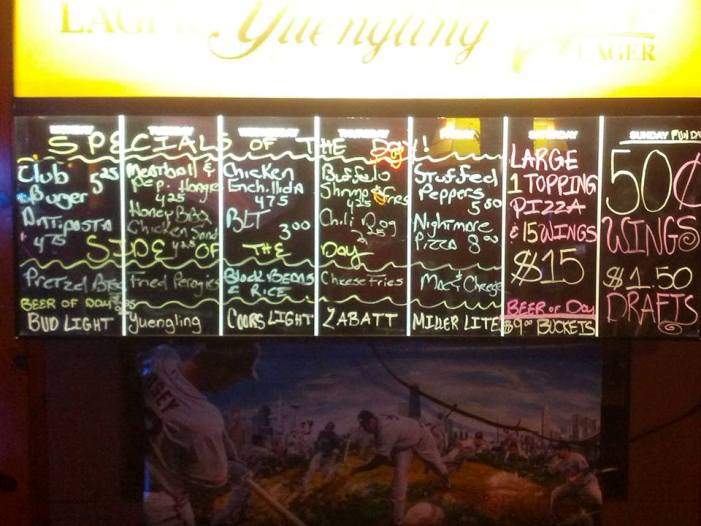 LAGER Yuengling LAGER
MONDAY TUESDAY WEDNESDAY THURSDAY FRIDAY SATURDAY SUNDAY FUNDAY
SPECIALS OF THE DAY!
Club Burger 5.25
Antipasta 4.75
Meatball & Pep. Hoagie 4.25
Honey BBQ Chicken Sand
Chicken Enchilida 4.75
BLT 3.00
Buffalo Shrimp & Fries
Chili Dog
Stuffed Peppers 5.00
Nightmare Pizza 8.00
SIDE OF THE DAY
Pretzel
Fried Perogies
Black Beans & Rice
Cheese Fries
Mac & Cheese
BEER OF DAY
BUD LIGHT
Yuengling
COORS LIGHT
LABATT
MILLER LITE
LARGE
1 TOPPING
PIZZA
& 15 WINGS
$15
BEER OF DAY
$9.00 BUCKETS
50¢
WINGS
$1.50
DRAFTS